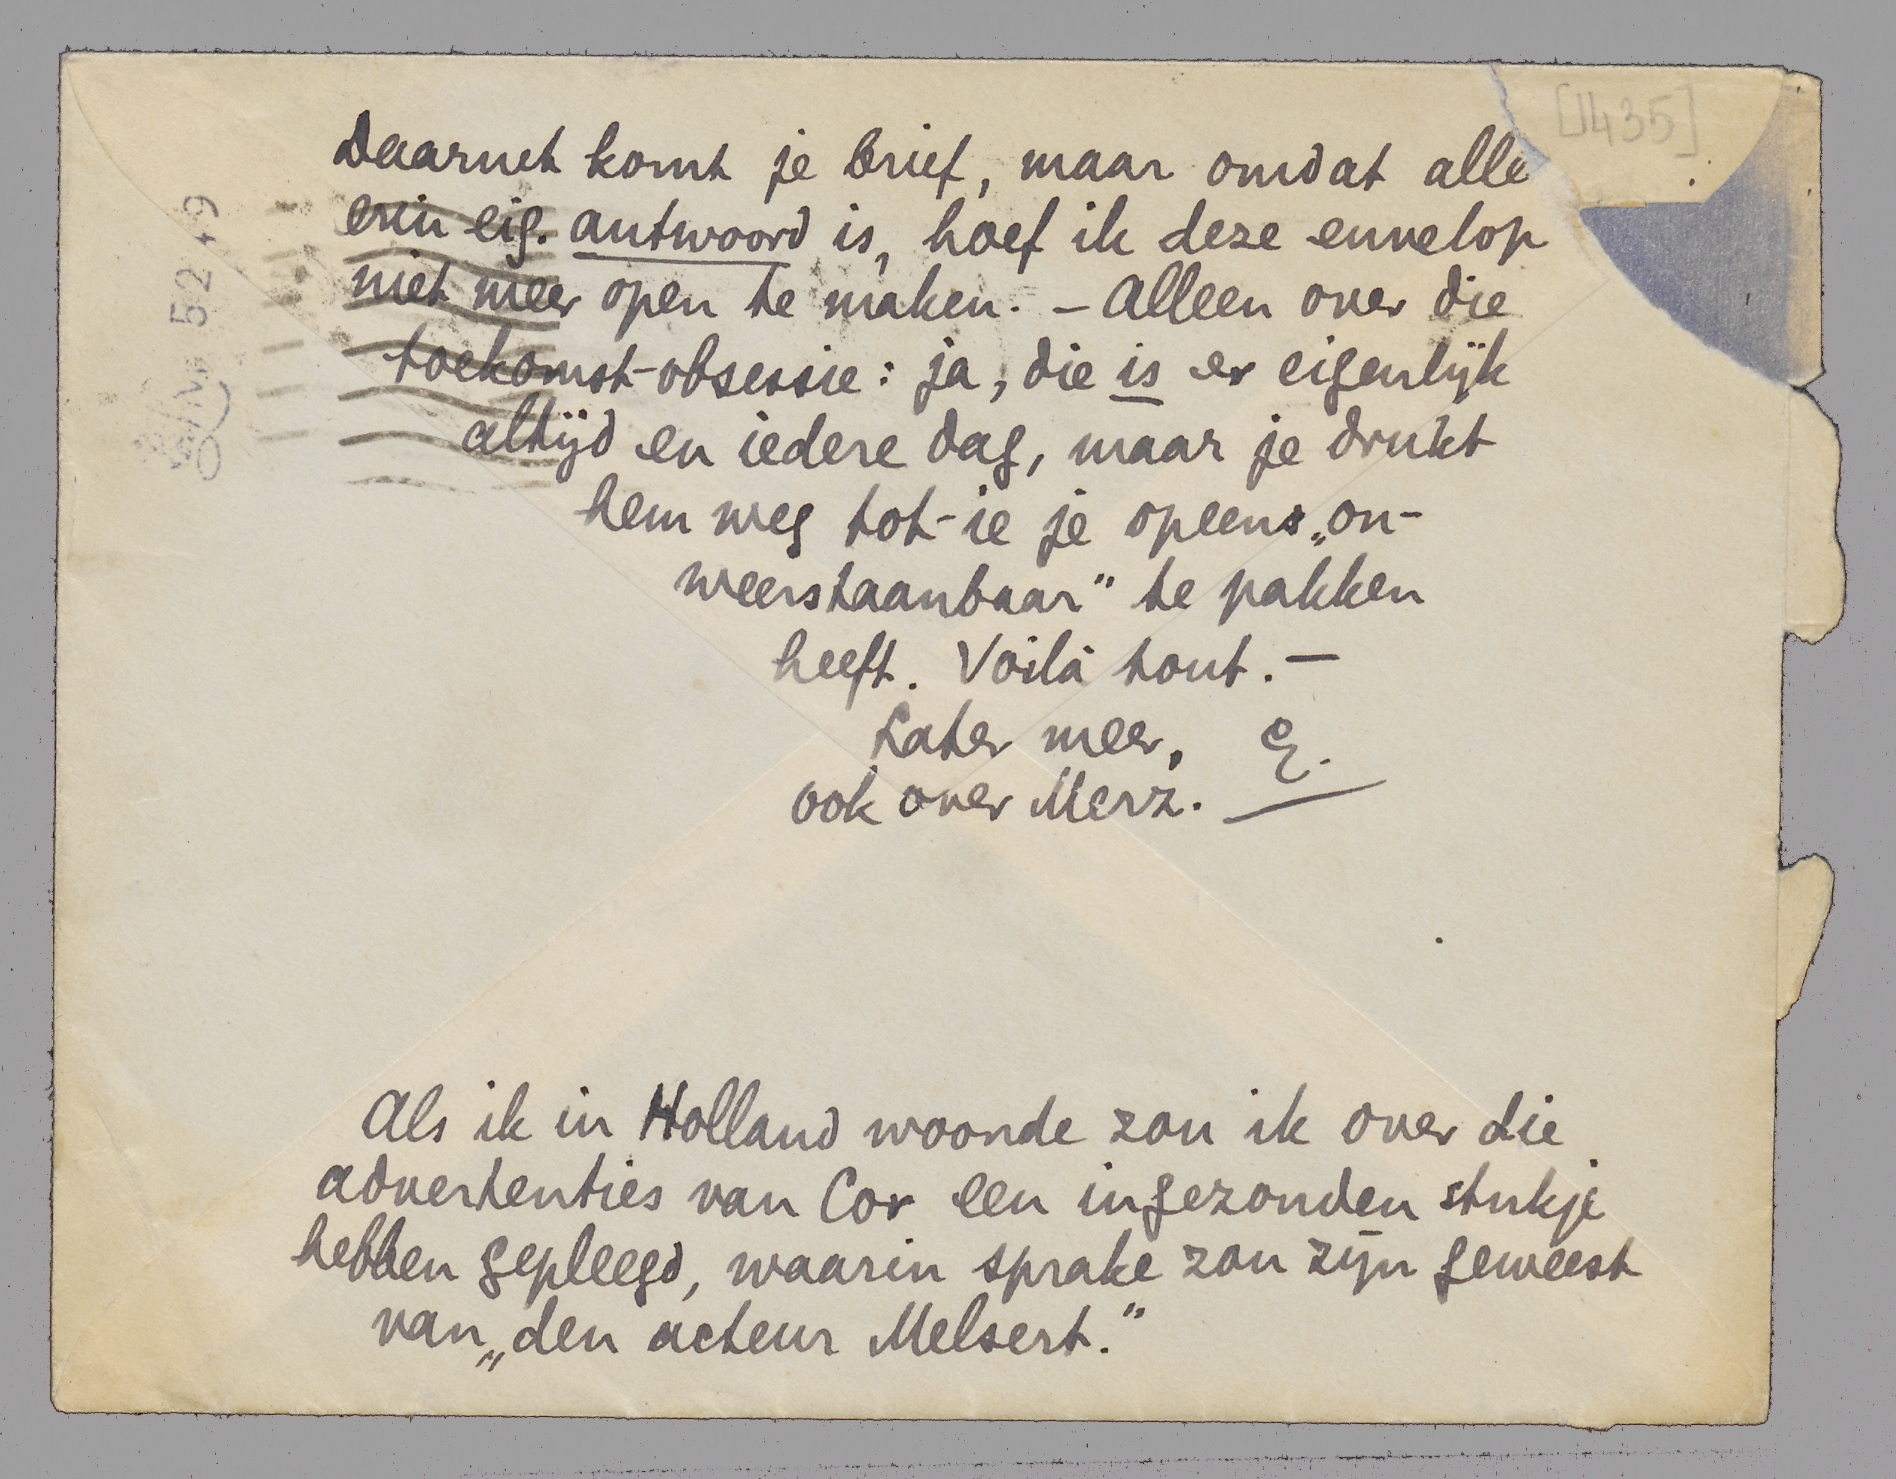 [1435]
Daarnet komt je brief, maar omdat alle
erin eig. antwoord is, hoef ik deze envelop
niet meer open te maken. – Alleen over die
toekomst-obsessie: ja, die is er eigenlijk
altijd en iedere dag, maar je drukt
hem weg tot-ie je opeens „on-
weerstaanbaar” te pakken
heeft. Voilà tout. –
Later meer, E.
ook over Merz.
Als ik in Holland woonde zou ik over die
advertenties van Cor een ingezonden stukje
hebben gepleegd, waarin sprake zou zijn geweest
van „den acteur Melsert.”